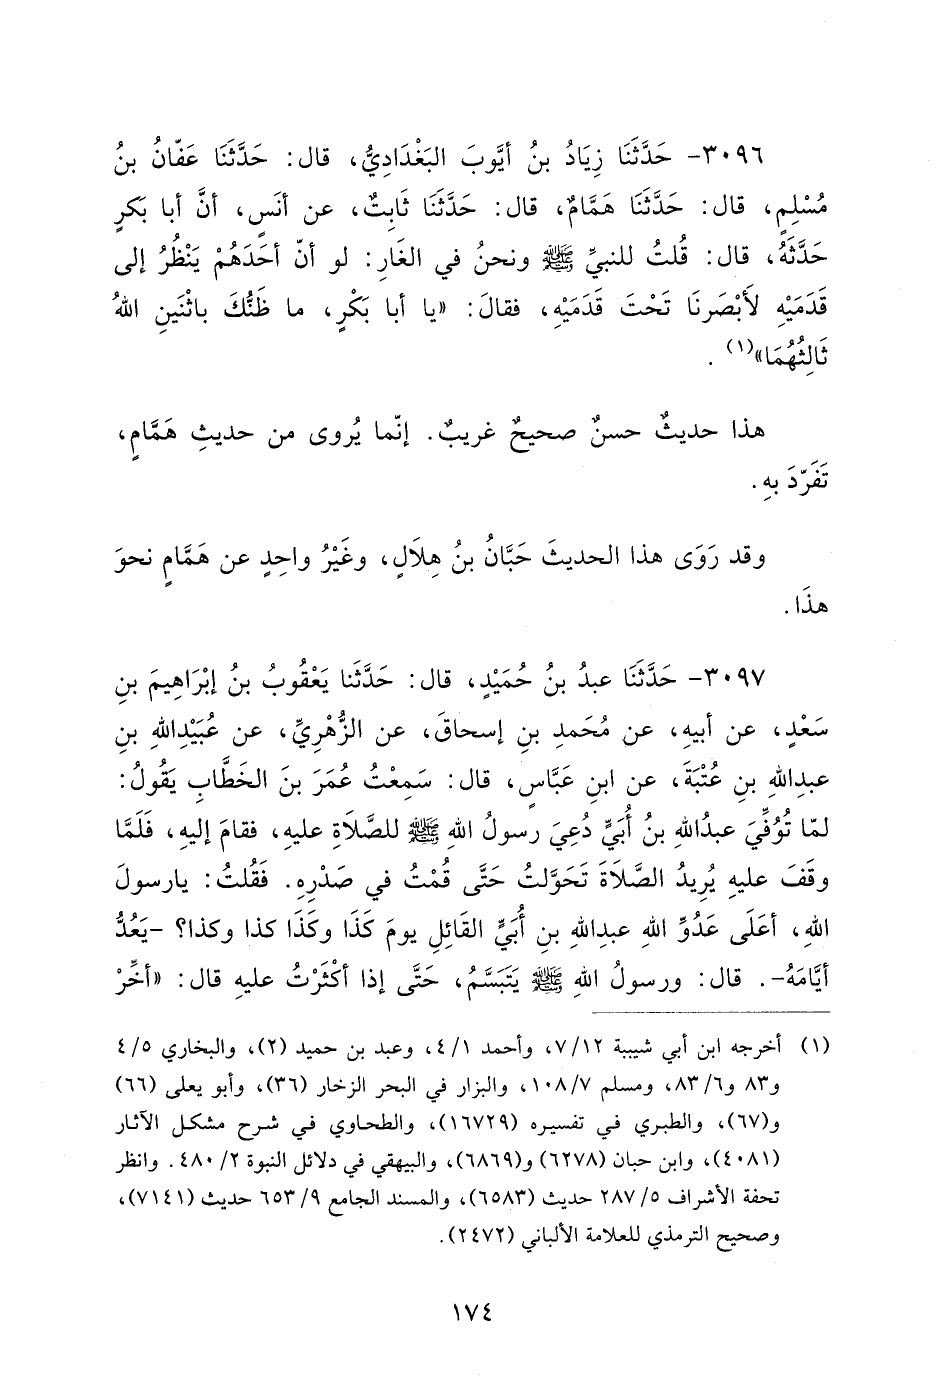 ٣٠٩٦- حَدَّثَنَا زِيَادُ بنُ أيَّوبَ البَغْدَادِيُّ، قال: حَدَّثَنَا عَفّانُ بنُ
مُسْلِمٍ، قال: حَدَّثَنَا هَمَّامٌ، قال: حَدَّثَنَا ثَابِتٌ، عن أنَسٍ، أنَّ أبا بَكرٍ
حَدَّثَهُ، قال: قُلتُ للنبيِّ ﷺ ونحنُ في الغَارِ: لو أنّ أحَدَهُمْ يَنْظُرُ إلى
قَدَمَيْهِ لَأَبْصَرنَا تَحْتَ قَدَمَيْهِ، فقالَ: «يا أبا بَكْرٍ، ما ظَنُّكَ باثْنَينِ اللهُ
ثَالِثُهُمَا»(١) .
هذا حديثٌ حسنٌ صحيحٌ غريبٌ. إنّما يُروى من حديثِ هَمَّامٍ،
تَفَرّدَ بهِ.
وقد رَوَى هذا الحديثَ حَبَّانُ بنُ هِلَالٍ، وغَيْرُ واحِدٍ عن هَمَّامٍ نحوَ
هذَا.
٣٠٩٧- حَدَّثَنَا عبدُ بنُ حُمَيْدٍ، قال: حَدَّثَنا يَعْقُوبُ بنُ إبْرَاهِيمَ بنِ
سَعْدٍ، عن أبيهِ، عن مُحَمدِ بنِ إسحاقَ، عن الزُّهْرِيِّ، عن عُبَيْدِاللهِ بنِ
عبدِاللهِ بنِ عُتْبَةَ، عن ابنِ عَبَّاسٍ، قال: سَمِعْتُ عُمَرَ بنَ الخَطَّابِ يَقُولُ:
لمّا تُوُفِّيَ عبدُاللهِ بنُ أُبَيٍّ دُعِيَ رسولُ اللهِ ﷺ للصَّلَاةِ عليهِ، فقامَ إليهِ، فَلَمَّا
وقَفَ عليهِ يُرِيدُ الصَّلَاةَ تَحَوَّلتُ حَتَّى قُمْتُ في صَدْرِهِ. فَقُلتُ: يارسولَ
اللهِ، أعَلَى عَدُوِّ اللهِ عبدِاللهِ بنِ أُبَيٍّ القَائِلِ يومَ كَذَا وكَذَا كذا وكذا؟ -يَعُدُّ
أيَّامَهُ-. قال: ورسولُ اللهِ ﷺ يَتَبَسَّمُ، حَتَّى إذا أكْثَرْتُ عليهِ قال: «أخِّرْ
(١) أخرجه ابن أبي شيبة ١٢/ ٧، وأحمد ١/ ٤، وعبد بن حميد (٢)، والبخاري ٥/ ٤
و٨٣ و٦/ ٨٣، ومسلم ٧/ ١٠٨، والبزار في البحر الزخار (٣٦)، وأبو يعلى (٦٦)
و(٦٧)، والطبري في تفسيره (١٦٧٢٩)، والطحاوي في شرح مشكل الآثار
(٤٠٨١)، وابن حبان (٦٢٧٨) و(٦٨٦٩)، والبيهقي في دلائل النبوة ٢/ ٤٨٠. وانظر
تحفة الأشراف ٥/ ٢٨٧ حديث (٦٥٨٣)، والمسند الجامع ٩/ ٦٥٣ حديث (٧١٤١)،
وصحيح الترمذي للعلامة الألباني (٢٤٧٢).
١٧٤